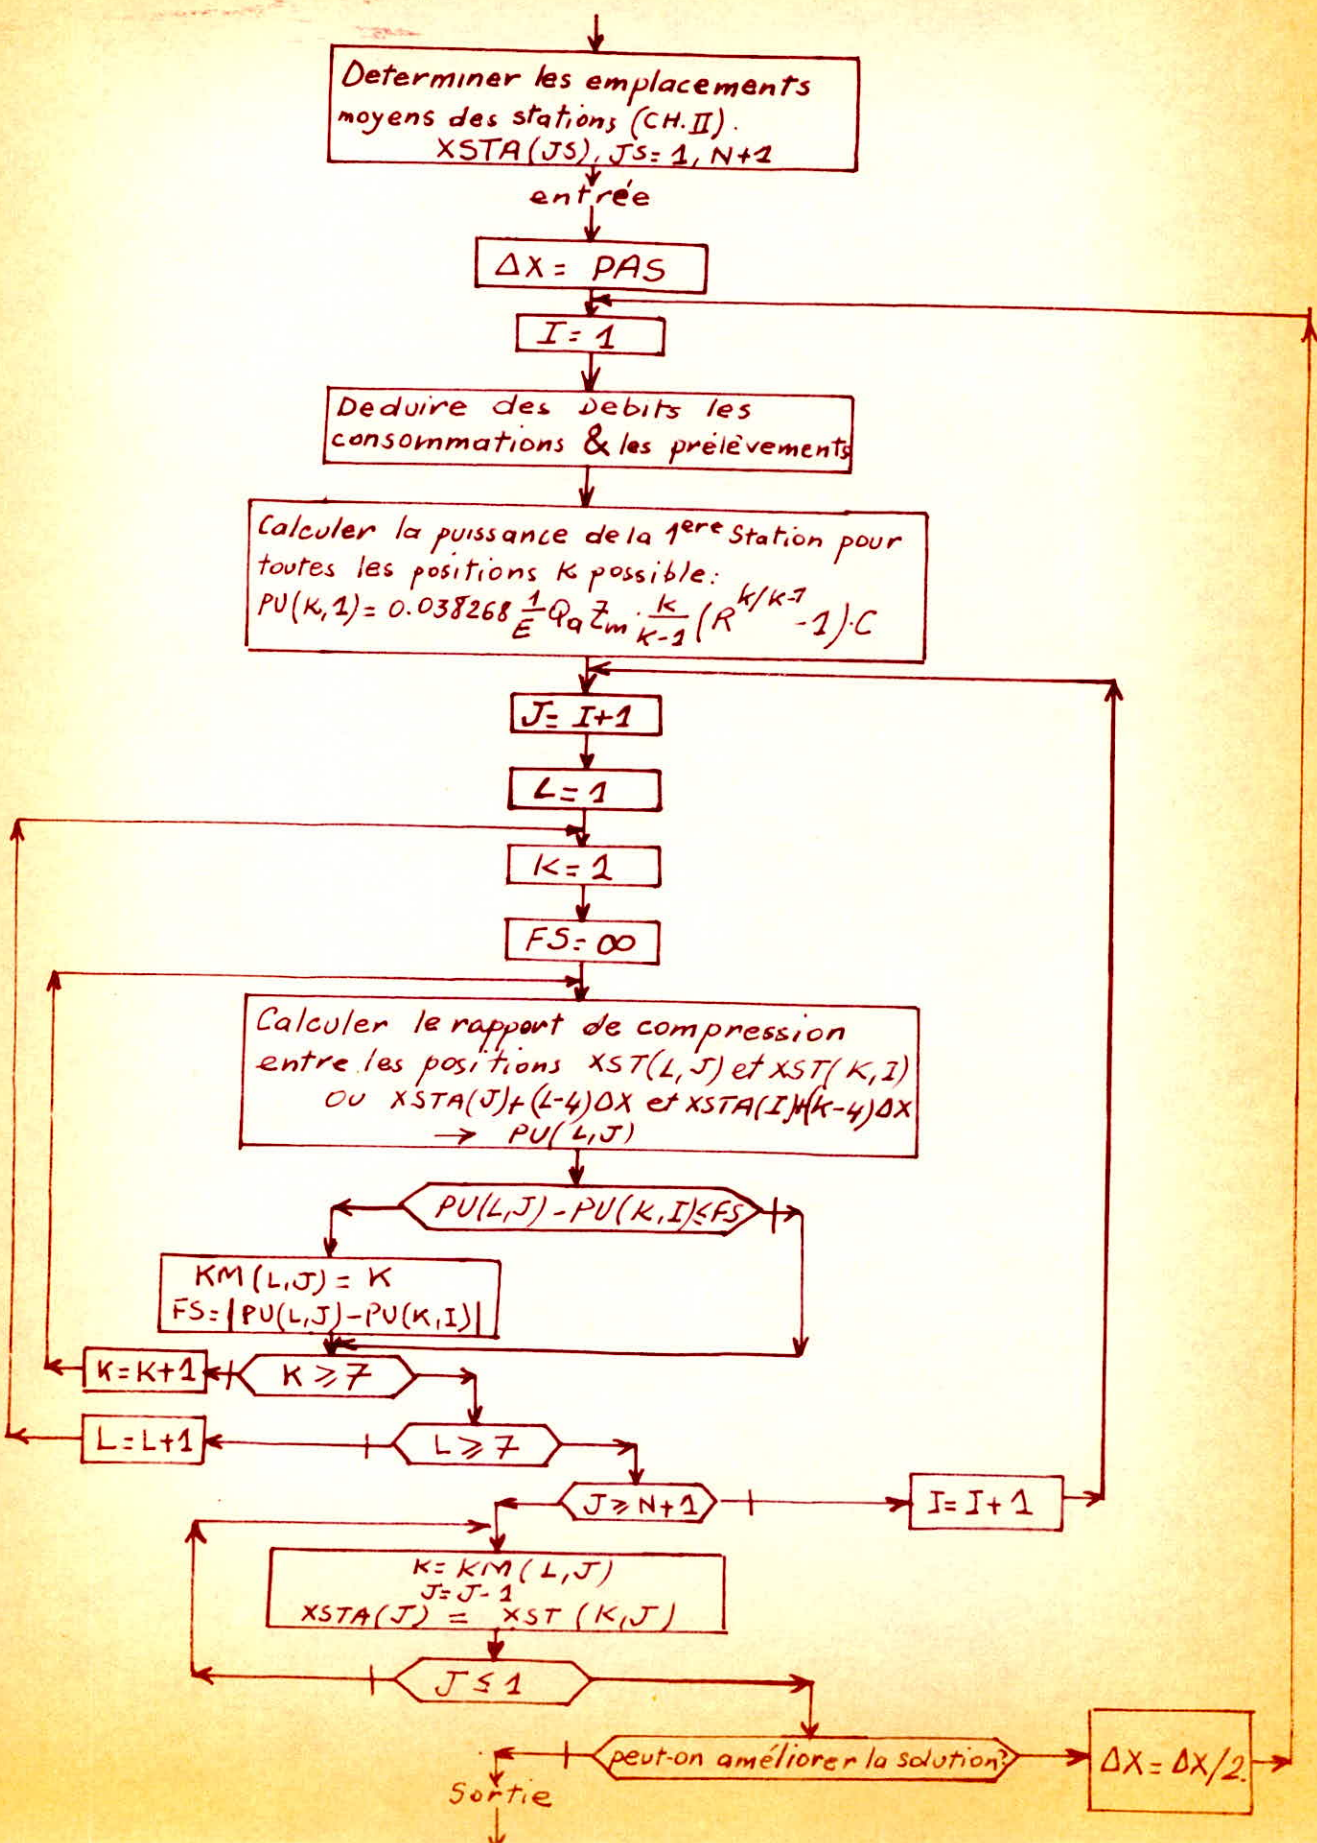 Determiner les emplacements
moyens des stations (CH.II).
XSTA(JS), JS=1, N+1
entrée
ΔX = PAS
I = 1
Deduire des Debits les
consommations & les prélèvements
Calculer la puissance de la 1ere Station pour
toutes les positions K possible:
PU(K,1) = 0.038268 1/E Qa Zm . K/K-1 (R^k/k-1 -1).C
J = I+1
L = 1
K = 1
FS = ∞
Calculer le rapport de compression
entre les positions XST(L,J) et XST(K,I)
OU XSTA(J)+(L-4)ΔX et XSTA(I)+(K-4)ΔX
→ PU(L,J)
PU(L,J) - PU(K,I) ≤ FS
KM(L,J) = K
FS = |PU(L,J) - PU(K,I)|
K = K+1
K ⩾ 7
L = L+1
L ⩾ 7
J ⩾ N+1
I = I+1
K = KM(L,J)
J = J-1
XSTA(J) = XST(K,J)
J ≤ 1
peut-on améliorer la solution?
ΔX = ΔX/2.
Sortie